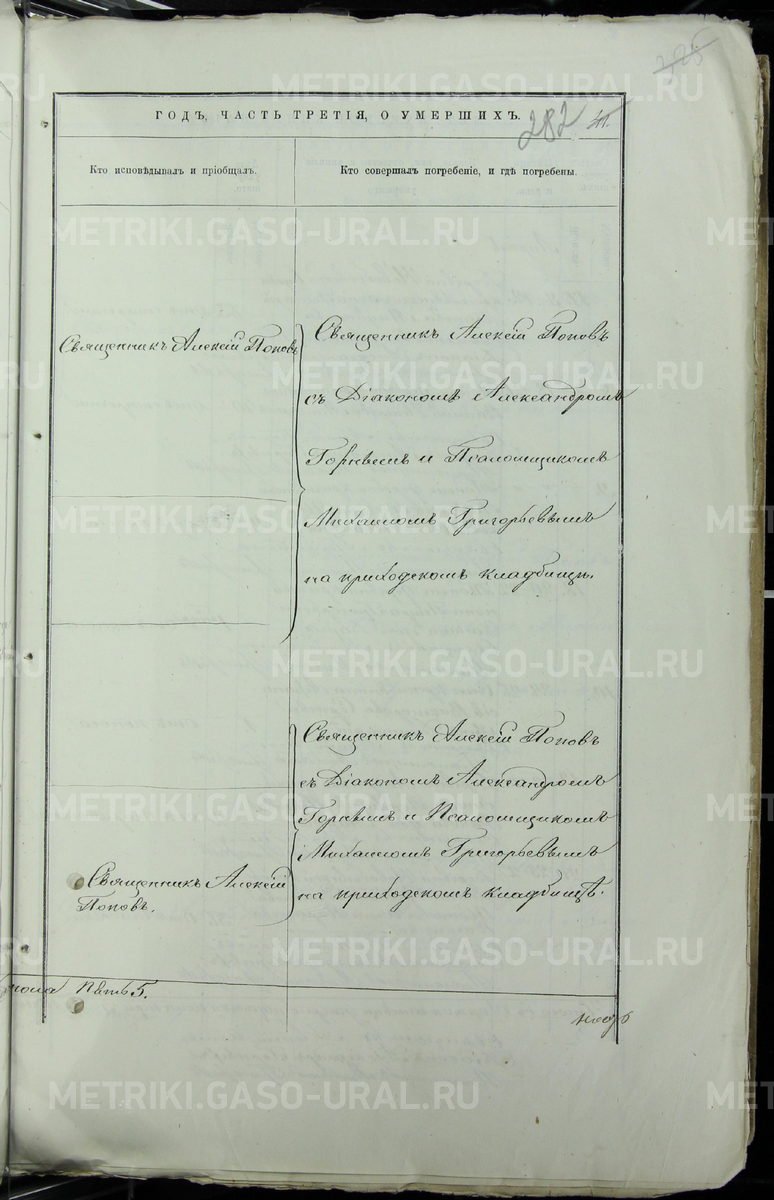 325
ГОДЪ, ЧАСТЬ ТРЕТІЯ, О УМЕРШИХЪ.
282
41.
Кто исповѣдывалъ и пріобщалъ.
Кто совершалъ погребеніе, и гдѣ погребены.
Священникъ Алексій Поповъ
Священникъ Алексій Поповъ
съ Діакономъ Александромъ
и Псаломщикомъ
Михаиломъ Григорьевымъ
на приходскомъ кладбищѣ.
Священникъ Алексій Поповъ
съ Діакономъ Александромъ
и Псаломщикомъ
Михаиломъ Григорьевымъ
на приходскомъ кладбищѣ.
Священникъ Алексій
Поповъ.
пола Пять 5.
METRIKI.GASO-URAL.RU